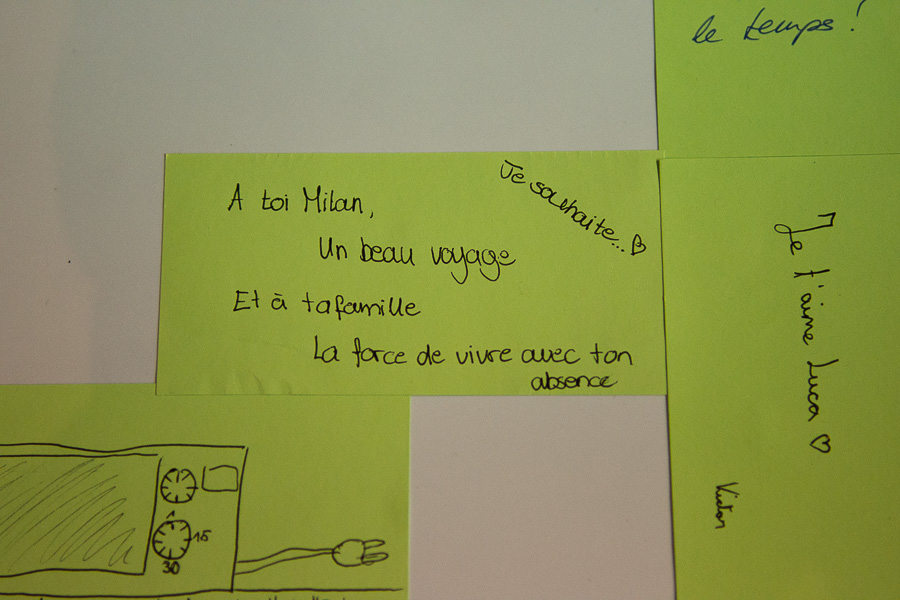 le temps !
Je souhaite... ♡
A toi Milan,
Un beau voyage
Et à ta famille
La force de vivre avec ton
absence
Je t'aime Luca ♡
Victor
15
30